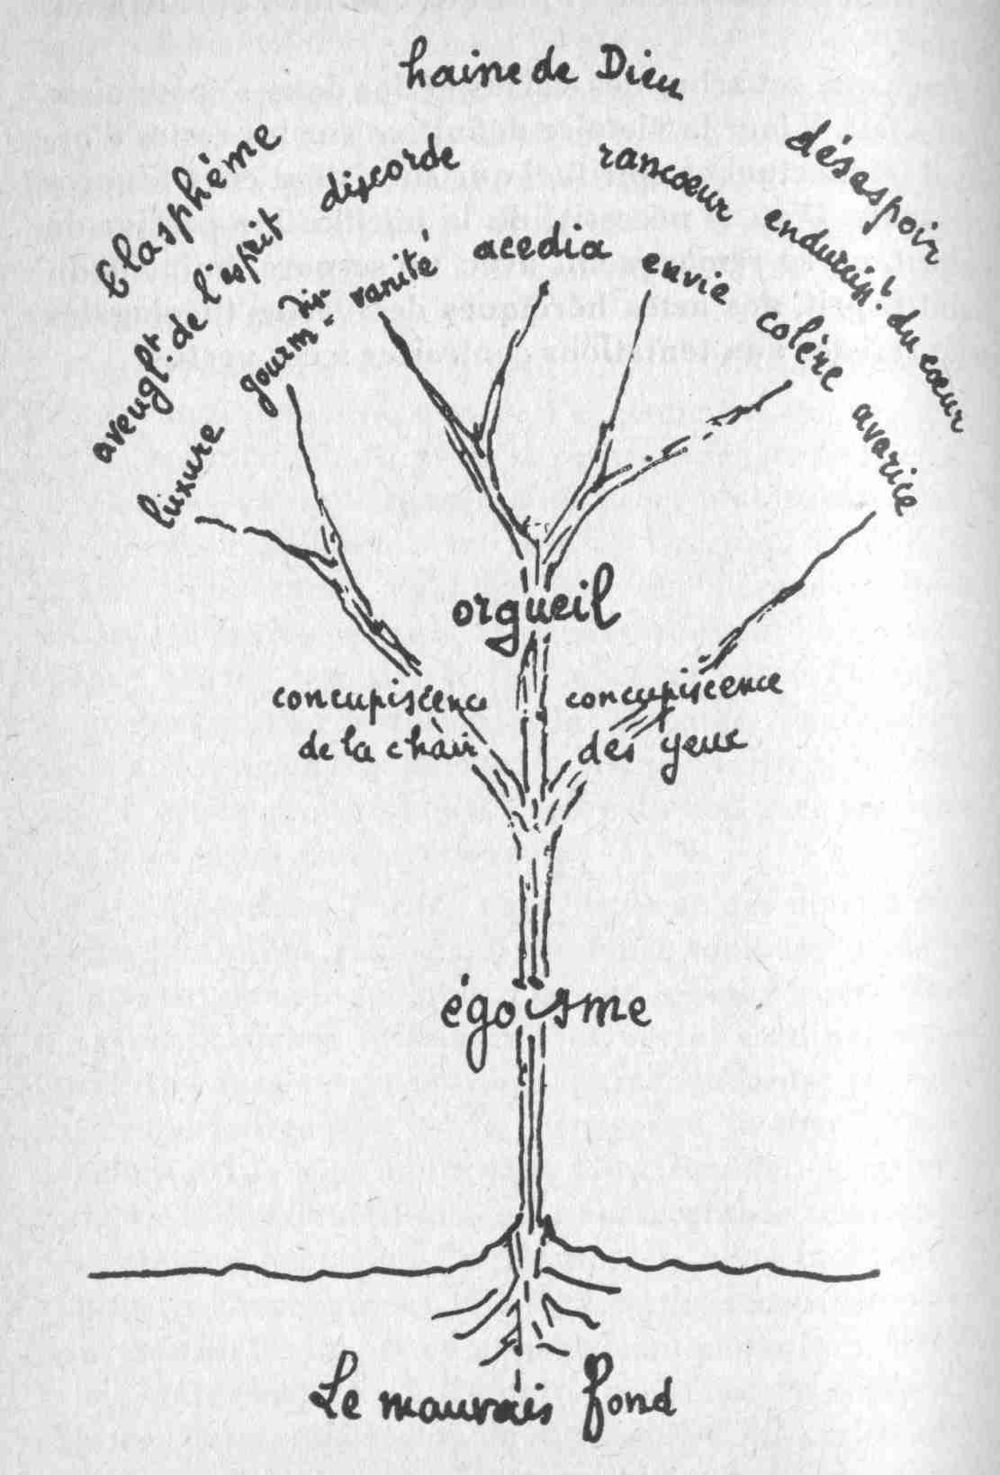 haine de Dieu
blasphème
discorde
rancœur
désespoir
aveuglt. de l'esprit
endurcisst. du cœur
luxure
gourm=
dise
vanité
acedia
envie
colère
avarice
orgueil
concupiscence
de la chair
concupiscence
des yeux
égoïsme
Le mauvais fond